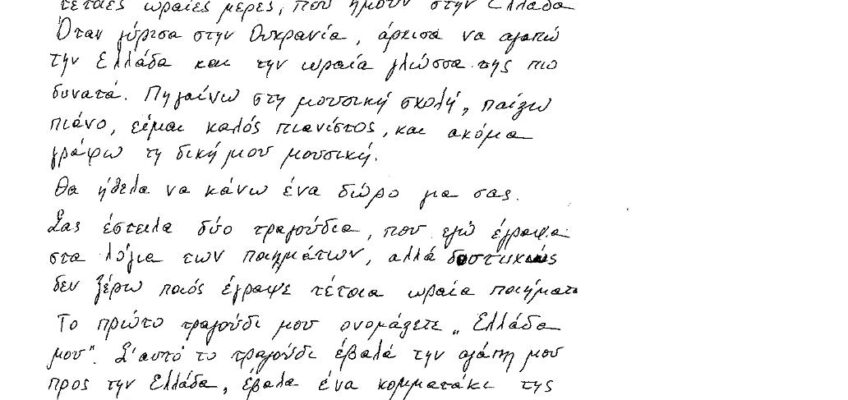 τέτοιες ωραίες μέρες, που ήμουν στην Ελλάδα
Όταν γύρισα στην Ουκρανία, άρχισα να αγαπώ
την Ελλάδα και την ωραία γλώσσα της πιο
δυνατά. Πηγαίνω στη μουσική σχολή, παίζω
πιάνο, είμαι καλός πιανίστος, και ακόμα
γράφω τη δική μου μουσική.
Θα ήθελα να κάνω ένα δώρο για σας.
Σας έστειλα δύο τραγούδια, που εγώ έγραφα
στα λόγια των ποιημάτων, αλλά δυστυχώς
δεν ξέρω ποιός έγραψε τέτοια ωραία ποιήματα
Το πρώτο τραγούδι μου ονομάζετε „Ελλάδα
μου". Σ'αυτό το τραγούδι έβαλα την αγάπη μου
προς την Ελλάδα, έβαλα ένα κομματάκι της